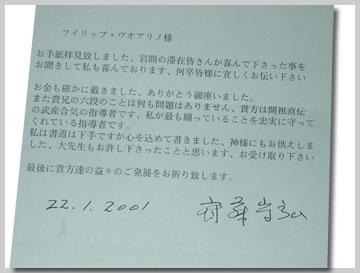 フイリップ・ヴオアリノ様
お手紙拝見致しました、岩間の滞在皆さんが喜んで下さった事を
お聞きして私も喜んでおります、何卒皆様に宜しくお伝い下さい
お金も確かに戴きました、ありがとう御座いました。
また貴兄の六段のことは何も問題はありません、貴方は開祖直伝
の武産合気の指導者です、私が最も願っていることを忠実に守って
くれている指導者です。
私は書道は下手ですが心を込めて書きました、神様にもお供えしま
した、大先生もお許し下さったことと思います、お受け取り下さい
最後に貴方達の益々のご発展をお祈り致します。
22.1.2001 齊藤守弘